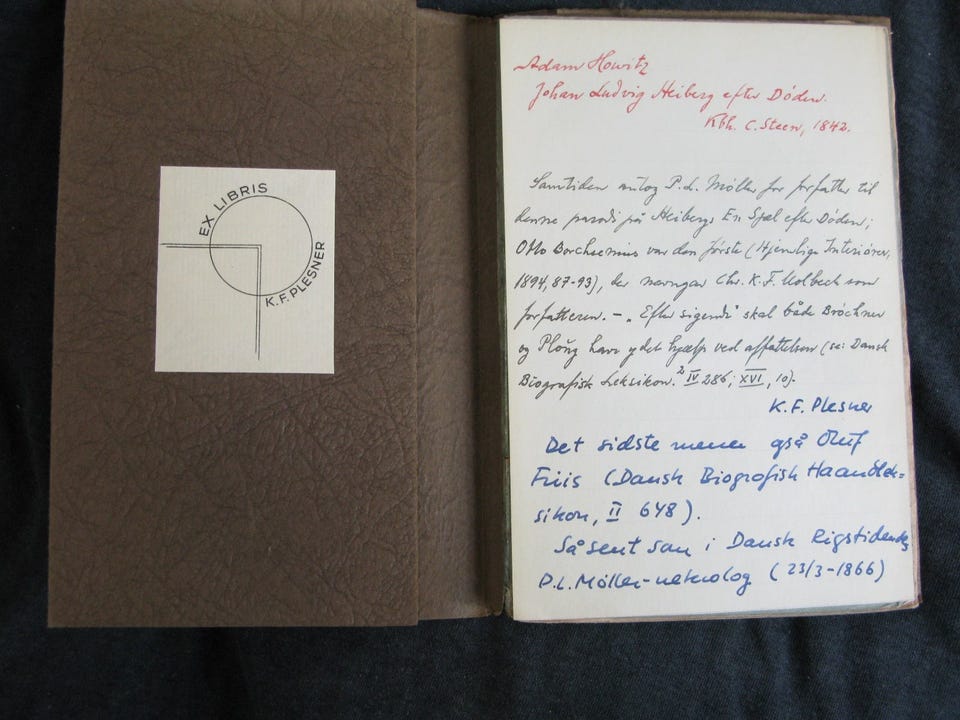 EX LIBRIS
K.F. PLESNER
Adam Howitz
Johan Ludvig Heiberg efter Døden.
Kbh. C. Steen, 1842.
Samtiden antog P.L. Møller for forfatter til
denne parodi på Heibergs En Sjæl efter Døden;
Otto Borchsenius var den første (Hjemlige Interiører,
1894, 87-93), der nævner Chr. K.F. Molbech som
forfatteren. – "Efter sigende" skal både Bröchner
og Ploug have ydet hjælp ved affattelsen (se: Dansk
Biografisk Leksikon.² IV 286; XVI, 10).
K.F. Plesner
Det sidste mener også Oluf
Friis (Dansk Biografisk Haandlek-
sikon, II 648).
Så sent som i Dansk Rigstidendes
P.L. Møller-nekrolog (23/3-1866)